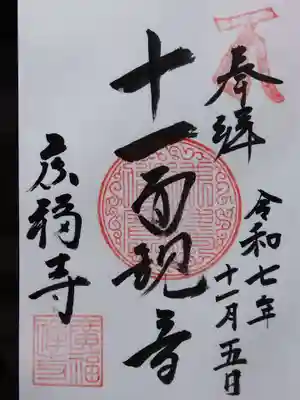 奉拝
令和七年
十一月五日
十一面観音
廣福寺